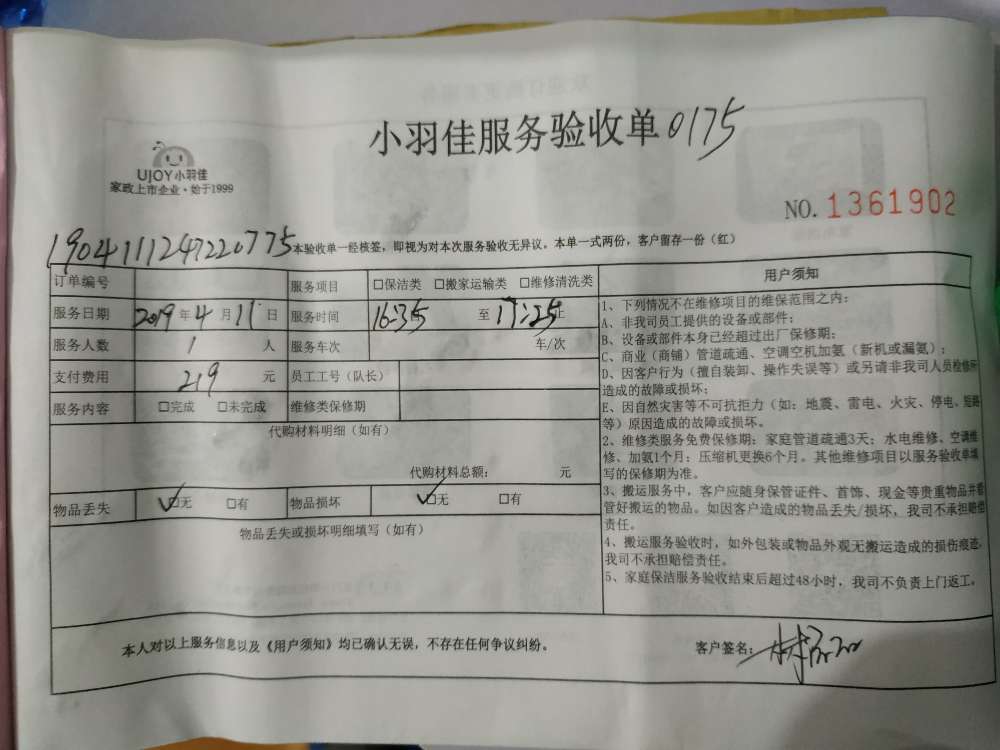 小羽佳服务验收单 0175
UJOY小羽佳
家政上市企业·始于1999
NO. 1361902
1904111247220775 本验收单一经核签，即视为对本次服务验收无异议。本单一式两份，客户留存一份（红）
订单编号 服务项目 □保洁类 □搬家运输类 □维修清洗类
服务日期 2019年4月11日 服务时间 16:35 至 17:25止
服务人数 1 人 服务车次 车/次
支付费用 219 元 员工工号（队长）
服务内容 □完成 □未完成 维修类保修期
代购材料明细（如有）
代购材料总额： 元
物品丢失 ✓□无 □有 物品损坏 ✓□无 □有
物品丢失或损坏明细填写（如有）
用户须知
1、下列情况不在维修项目的维保范围之内：
A、非我司员工提供的设备或部件；
B、设备或部件本身已经超过出厂保修期；
C、商业（商铺）管道疏通、空调空机加氨（新机或漏氨）；
D、因客户行为（擅自装卸、操作失误等）或另请非我司人员检修所
造成的故障或损坏；
E、因自然灾害等不可抗拒力（如：地震、雷电、火灾、停电、短路
等）原因造成的故障或损坏。
2、维修类服务免费保修期：家庭管道疏通3天；水电维修、空调维
修、加氨1个月；压缩机更换6个月。其他维修项目以服务验收单填
写的保修期为准。
3、搬运服务中，客户应随身保管证件、首饰、现金等贵重物品并看
管好搬运的物品。如因客户造成的物品丢失/损坏，我司不承担赔偿
责任。
4、搬运服务验收时，如外包装或物品外观无搬运造成的损伤痕迹，
我司不承担赔偿责任。
5、家庭保洁服务验收结束后超过48小时，我司不负责上门返工。
本人对以上服务信息以及《用户须知》均已确认无误，不存在任何争议纠纷。
客户签名：